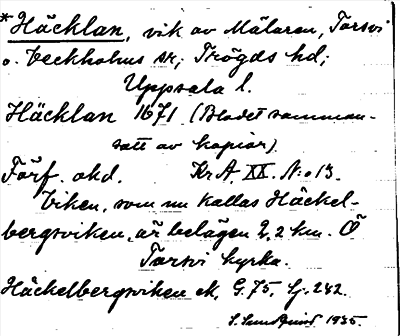 *Häcklan, vik av Mälaren, Torsvi
o. Veckholms sn; Trögds hd;
Uppsala l.
Häcklan 1671 (Bladet samman-
satt av kopior)
Förf. okd. Kr A. XX. N:o 13.
Viken, som nu kallas Häckel-
bergsviken, är belägen 2,2 km. Ö
Torsvi kyrka.
Häckelbergsviken ek, G. 75, Sj. 282.
S. 1935.